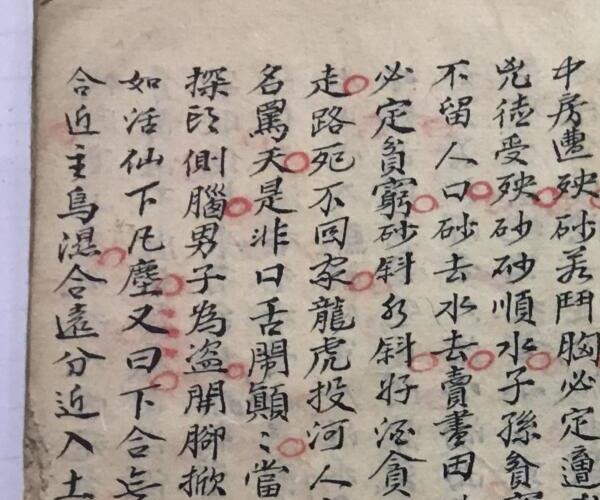 中房遭殃砂若鬥胸必定遭
兇徒受殃砂砂順水子孫貧
不留人口砂去水去賣盡田
必定貧窮砂斜水斜好酒貪
走路死不回家龍虎投河人
名罵天是非口舌鬧顛〻當
探頭側腦男子為盜開腳掀
如活仙下凡塵又曰下合
合近主鳥濕合遠分近入土